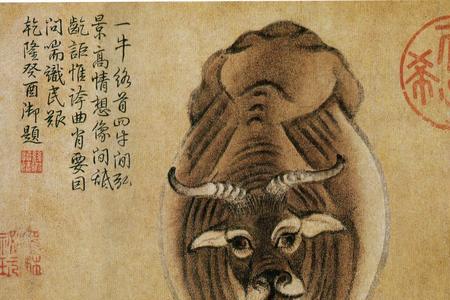 一牛絡首四牛閒弘
景高情想像間舐
齕詎惟誇曲肖要因
問喘識民艱
乾隆癸酉御題
希